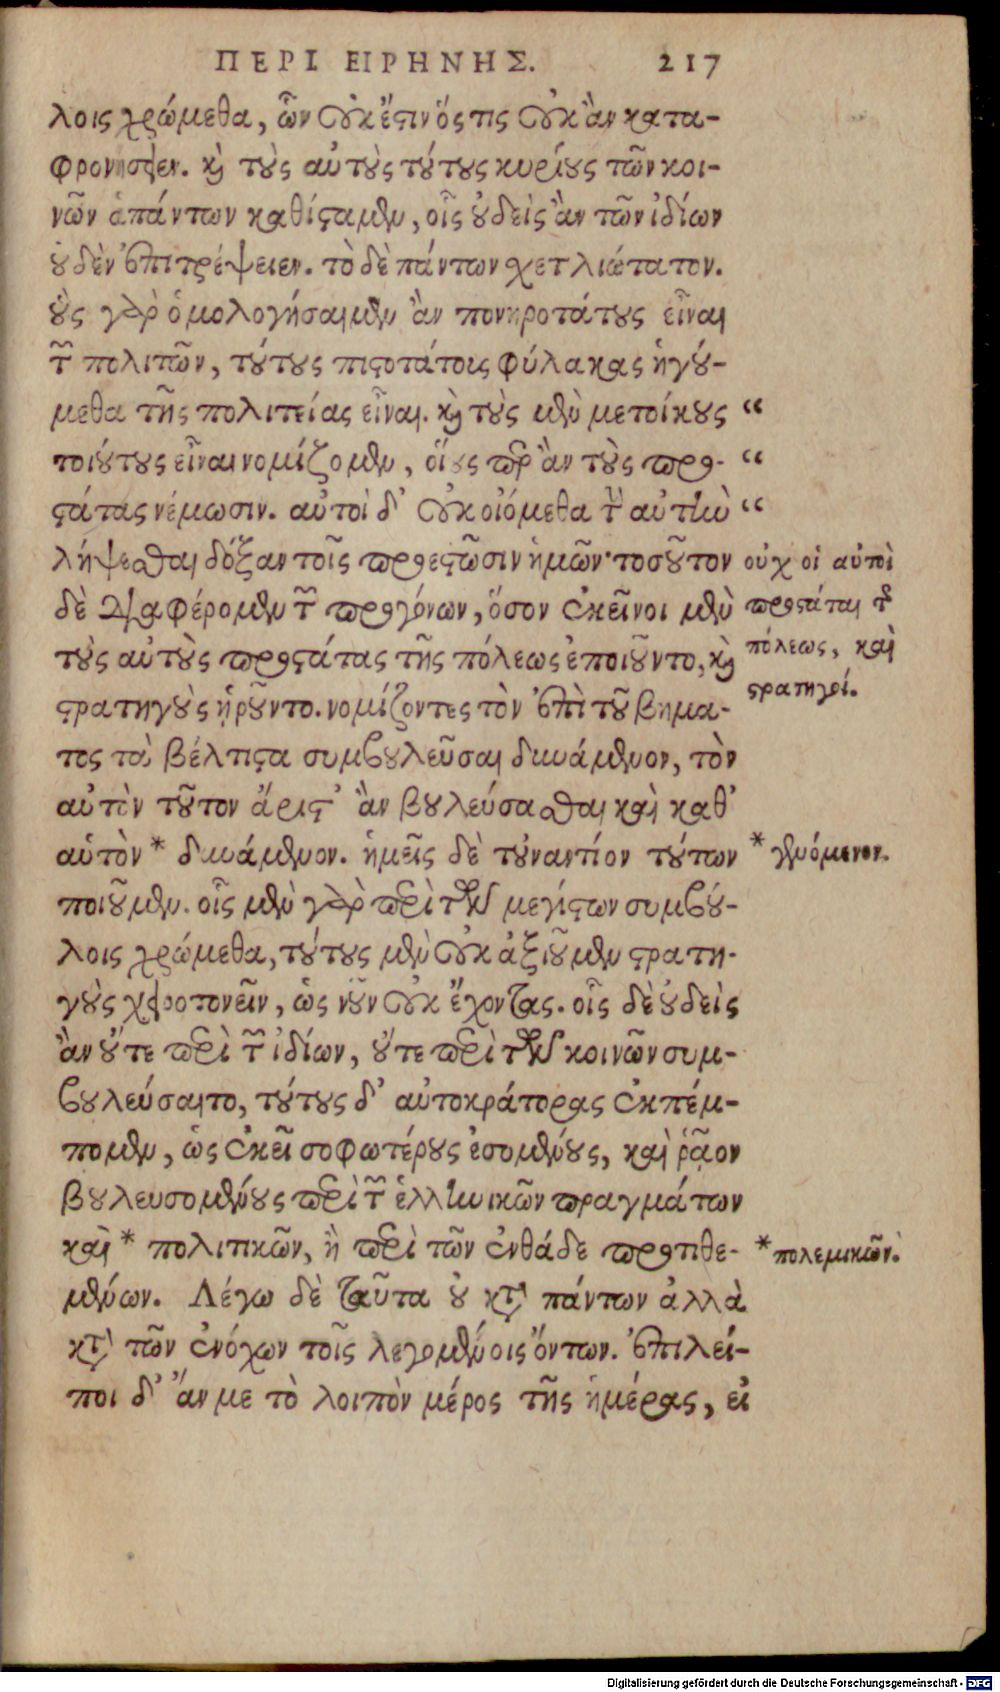 ΠΕΡΙ ΕΙΡΗΝΗΣ. 217
λοις χρώμεθα, ὧν οὐκ ἔστιν ὅστις οὐκ ἂν κατα-
φρονήσειεν. καὶ τοὺς αὐτοὺς τούτους κυρίους τῶν κοι-
νῶν ἁπάντων καθίσταμεν, οἷς οὐδεὶς ἂν τῶν ἰδίων
οὐδὲν ἐπιτρέψειεν. τὸ δὲ πάντων χετλιώτατον.
οὓς γὰρ ὁμολογήσαιμεν ἂν πονηροτάτους εἶναι
τῶν πολιτῶν, τούτους πιστοτάτοις φύλακας ἡγού-
μεθα τῆς πολιτείας εἶναι. καὶ τοὺς μὲν μετοίκους “
τοιούτους εἶναι νομίζομεν, οἵους περ ἂν τοὺς προ- “
στάτας νέμωσιν. αὐτοὶ δ' οὐκ οἰόμεθα τὴν αὐτὴν “
λήψεσθαι δόξαν τοῖς προεστῶσιν ἡμῶν· τοσοῦτον
δὲ διαφέρομεν τῶν προγόνων, ὅσον ἐκεῖνοι μὲν
τοὺς αὐτοὺς προστάτας τῆς πόλεως ἐποιοῦντο, καὶ
στρατηγοὺς ᾑροῦντο. νομίζοντες τὸν ἐπὶ τοῦ βήμα-
τος τὰ βέλτιστα συμβουλεῦσαι δυνάμενον, τὸν
αὐτὸν τοῦτον ἄριστ' ἂν βουλεύσασθαι καὶ καθ'
αὑτὸν * δυνάμενον. ἡμεῖς δὲ τοὐναντίον τούτων
ποιοῦμεν. οἷς μὲν γὰρ περὶ τῶν μεγίστων συμβού-
λοις χρώμεθα, τούτους μὲν οὐκ ἀξιοῦμεν στρατη-
γοὺς χειροτονεῖν, ὡς νοῦν οὐκ ἔχοντας. οἷς δὲ οὐδεὶς
ἂν οὔτε περὶ τῶν ἰδίων, οὔτε περὶ τῶν κοινῶν συμ-
βουλεύσαιτο, τούτους δ' αὐτοκράτορας ἐκπέμ-
πομεν, ὡς ἐκεῖ σοφωτέρους ἐσομένους, καὶ ῥᾷον
βουλευσομένους περὶ τῶν ἑλληνικῶν πραγμάτων
καὶ * πολιτικῶν, ἢ περὶ τῶν ἐνθάδε προτιθε-
μένων. Λέγω δὲ ταῦτα οὐ κατὰ πάντων ἀλλὰ
κατὰ τῶν ἐνόχων τοῖς λεγομένοις ὄντων. ἐπιλεί-
ποι δ' ἄν με τὸ λοιπὸν μέρος τῆς ἡμέρας, εἰ
οὐχ οἱ αὐτοὶ
προστάται τῆς
πόλεως, καὶ
στρατηγοί.
* γενόμενον.
* πολεμικῶν.
Digitalisierung gefördert durch die Deutsche Forschungsgemeinschaft - DFG